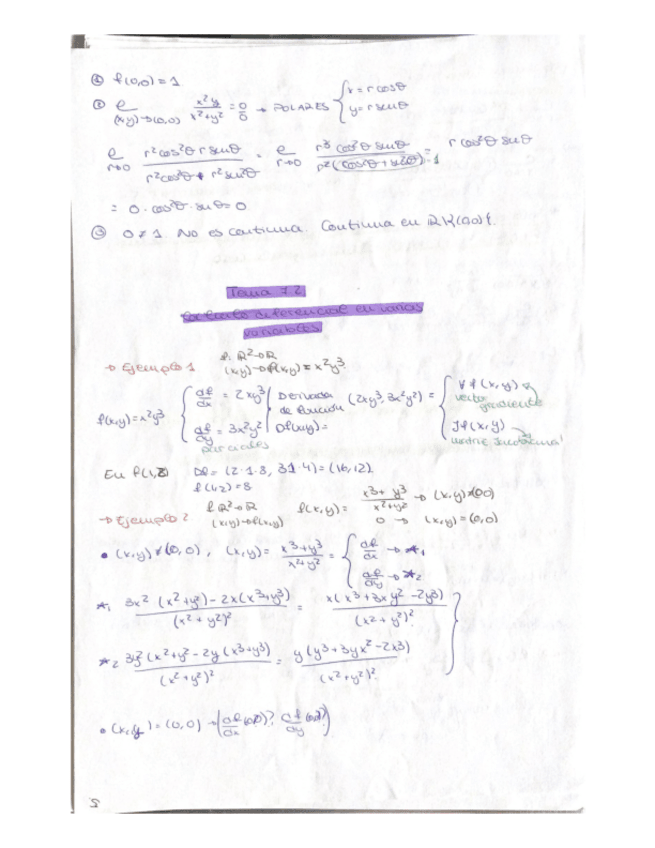 ① f(0,0) = 1
② ℓ (x,y)→(0,0) x²y / x²+y² = 0/0 → POLARES { x = r cosθ
y = r senθ
ℓ r→0 r² cos²θ r senθ / r² cos²θ + r² sen²θ = ℓ r→0 r³ cos²θ senθ / r² (cos²θ + sen²θ) → 1 = r cos²θ senθ
= 0 · cos²θ · senθ = 0
③ 0 ≠ 1 No es continua. Continua en ℝ \ {(0,0)}.
Tema 7.2
diferencial en varias
variables
→ Ejemplo 1 f: ℝ² → ℝ
(x,y) → f(x,y) = x²y³
f(x,y) = x²y³ { df/dx = 2xy³
df/dy = 3x²y²
parciales
Derivada de función Df(x,y) = (2xy³, 3x²y²) = { ∇f(x,y) → vector gradiente
Jf(x,y) → matriz Jacobiana
En P(1,2) Df = (2·1·8, 3·1·4) = (16,12)
f(1,2) = 8
→ Ejemplo 2 f: ℝ² → ℝ
(x,y) → f(x,y)
f(x,y) = x³ + y³ / x²+y² → (x,y) ≠ (0,0)
0 → (x,y) = (0,0)
• (x,y) ≠ (0,0), (x,y) = x³+y³ / x²+y² = { df/dx → *₁
df/dy → *₂
*₁ 3x² (x²+y²) - 2x(x³+y³) / (x²+y²)² = x(x³+3xy²-2y³) / (x²+y²)²
*₂ 3y² (x²+y² - 2y (x³+y³) / (x²+y²)² = y(y³+3yx²-2x³) / (x²+y²)²
• (x,y) = (0,0) → (df/dx (0,0)? df/dy (0,0)?)
5